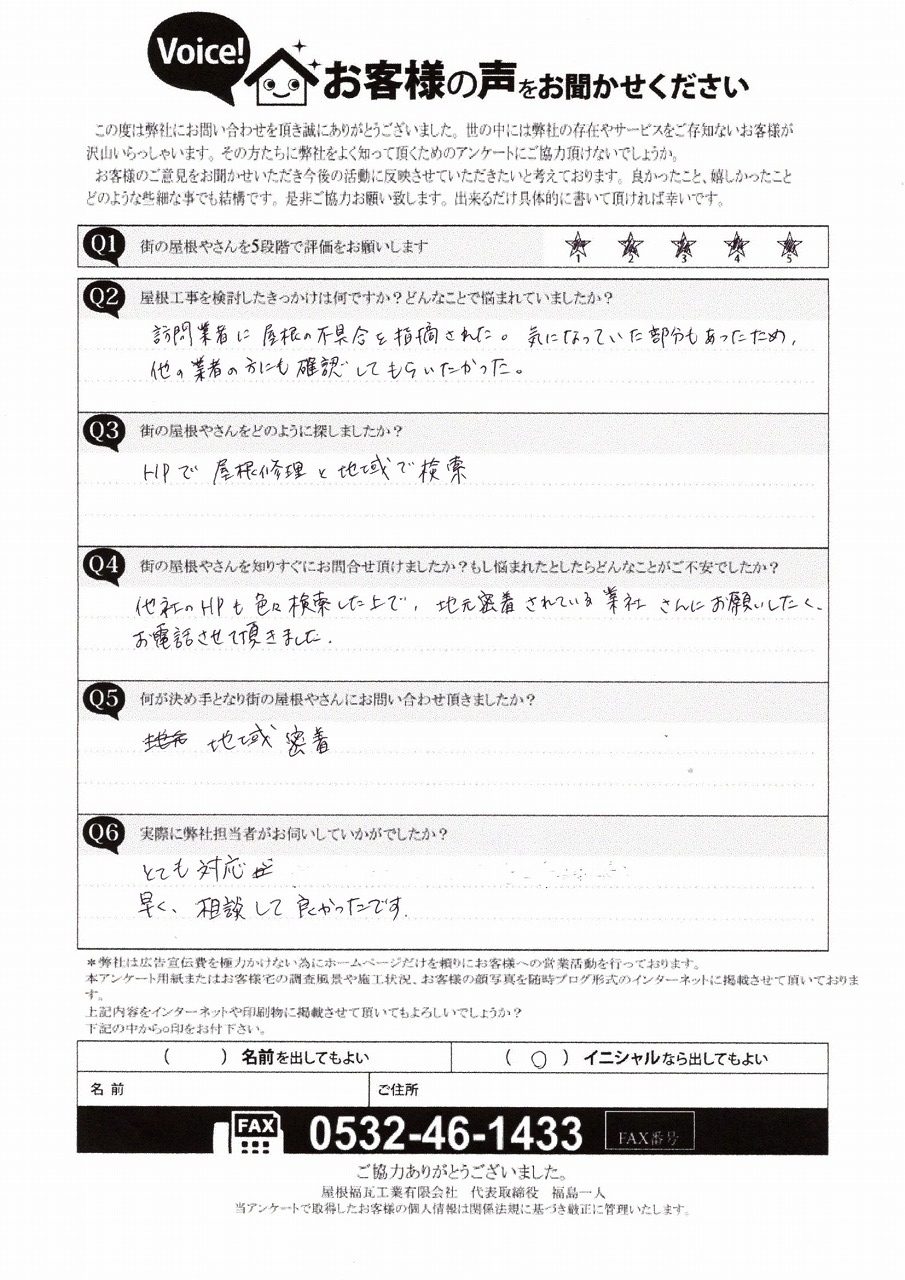 Voice!
お客様の声をお聞かせください
この度は弊社にお問い合わせを頂き誠にありがとうございました。世の中には弊社の存在やサービスをご存知ないお客様が
沢山いらっしゃいます。その方たちに弊社をよく知って頂くためのアンケートにご協力頂けないでしょうか。
お客様のご意見をお聞かせいただき今後の活動に反映させていただきたいと考えております。良かったこと、嬉しかったこと
どのような些細な事でも結構です。是非ご協力お願い致します。出来るだけ具体的に書いて頂ければ幸いです。
Q1 街の屋根やさんを5段階で評価をお願いします 1 2 3 4 5
Q2 屋根工事を検討したきっかけは何ですか?どんなことで悩まれていましたか?
訪問業者に屋根の不具合を指摘された。気になっていた部分もあったため、
他の業者の方にも確認してもらいたかった。
Q3 街の屋根やさんをどのように探しましたか?
HPで屋根修理と地域で検索
Q4 街の屋根やさんを知りすぐにお問合せ頂けましたか?もし悩まれたとしたらどんなことがご不安でしたか?
他社のHPも色々検索した上で、地元密着されている業社さんにお願いしたく、
お電話させて頂きました.
Q5 何が決め手となり街の屋根やさんにお問い合わせ頂きましたか?
地元 地域密着
Q6 実際に弊社担当者がお伺いしていかがでしたか?
とても対応が
早く、相談して良かったです.
*弊社は広告宣伝費を極力かけない為にホームページだけを頼りにお客様への営業活動を行っております。
本アンケート用紙またはお客様宅の調査風景や施工状況、お客様の顔写真を随時ブログ形式のインターネットに掲載させて頂いておりま
す。
上記内容をインターネットや印刷物に掲載させて頂いてもよろしいでしょうか?
下記の中から○印をお付下さい。
( ) 名前を出してもよい ( ○ ) イニシャルなら出してもよい
名前 ご住所
FAX 0532-46-1433 FAX番号
ご協力ありがとうございました。
屋根福瓦工業有限会社 代表取締役 福島一人
当アンケートで取得したお客様の個人情報は関係法規に基づき厳正に管理いたします。